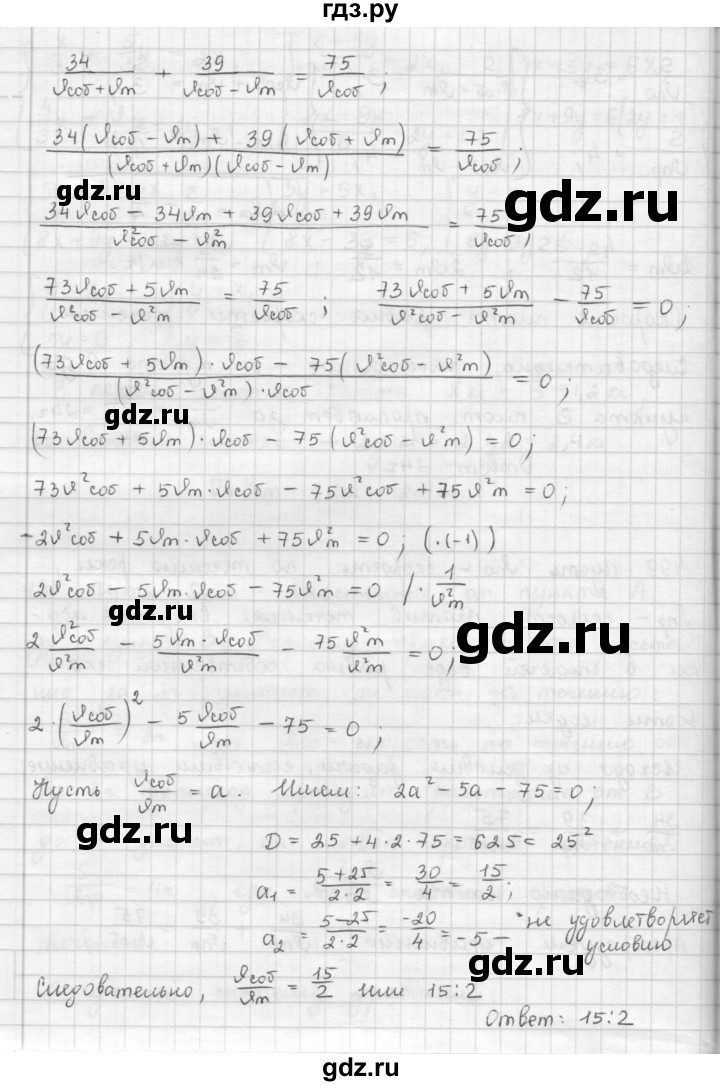 гдз.ру
34/(vсоб + vт) + 39/(vсоб − vт) = 75/vсоб ;
(34(vсоб − vт) + 39(vсоб + vт))/((vсоб + vт)(vсоб − vт)) = 75/vсоб ;
gdz.ru
gdz.ru
(34vсоб − 34vт + 39vсоб + 39vт)/(v²соб − v²т) = 75/vсоб ;
(73vсоб + 5vт)/(v²соб − v²т) = 75/vсоб ; (73vсоб + 5vт)/(v²соб − v²т) − 75/vсоб = 0;
((73vсоб + 5vт)·vсоб − 75(v²соб − v²т))/((v²соб − v²т)·vсоб) = 0;
gdz.ru
(73vсоб + 5vт)·vсоб − 75(v²соб − v²т) = 0;
73v²соб + 5vт·vсоб − 75v²соб + 75v²т = 0;
−2v²соб + 5vт·vсоб + 75v²т = 0; (·(−1))
2v²соб − 5vт·vсоб − 75v²т = 0 /· 1/v²т
gdz.ru
2 v²соб/v²т − 5vт·vсоб/v²т − 75v²т/v²т = 0;
gdz.ru
2·(vсоб/vт)² − 5 vсоб/vт − 75 = 0 ;
Пусть vсоб/vт = a. Имеем: 2a² − 5a − 75 = 0;
gdz.ru
D = 25 + 4·2·75 = 625 = 25²
a₁ = (5+25)/(2·2) = 30/4 = 15/2;
a₂ = (5−25)/(2·2) = −20/4 = −5 − не удовлетворяет
условию
gdz.ru
Следовательно, vсоб/vт = 15/2 или 15:2
Ответ: 15:2
gdz.ru